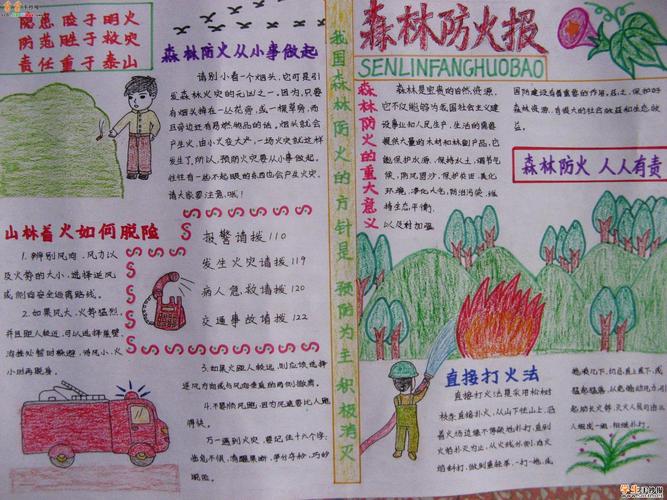 隐患险于明火
防范胜于救灾
责任重于泰山
森林防火从小事做起
请别小看一个烟头，它可是引
发森林火灾的元凶之一。因为，只要
有烟头掉在一丛花旁，或一棵草旁，而
且旁边还有易燃物品的话。烟头就会
产生火，由小火变大产，一场火灾就这样
发生了。所以，预防火灾要从小事做起。
往往有一些不起眼的东西也会产生火灾。
请大家要注意，哦！
山林着火如何脱险
1、辨别风向、风力以
及火势的大小，选择逆风
或侧向安全逃离路线。
2、如果风大，火势猛烈，
并且距人较近，可以选择崖壁、
沟洼处暂时躲避，待风小、火
小时再脱身。
报警请拨110
发生火灾请拨119
病人急救请拨120
交通事故请拨122
3、如果火距人较远，则应该选择
逆风方向或与风向垂直的两侧撤离。
4、不要顺风跑，因为风速要比人跑
得快。
万一遇到火灾，要记住十六个字：
临危不惧，清醒果断，争分夺秒，巧妙
脱险。
我国森林防火的方针是 预防为主 积极消灭
森林防火报
SENLINFANGHUOBAO
森林防火的重大意义
森林是宝贵的自然资源，
它不仅能够为我国社会主义建
设事业和人民生产、生活的需要
提供大量的木材和林副产品，它
能保护水源、保持水土、调节气
候、防风固沙、保护农田、美化
环境、净化大气、防治污染、维
持生态平衡，
以及对加强
国防建设有着重要的作用。总之，保护好
森林资源，有很大的社会效益和生态效
益。
森林防火 人人有责
直接打火法
直接打火法是采用松树
枝条直接扑火，从山下往山上，沿
着火场边缘不停顿地扑打，直到
火焰扑灭为止。从火线外侧，向火
焰斜打，做到重轻举，一打一拖，在